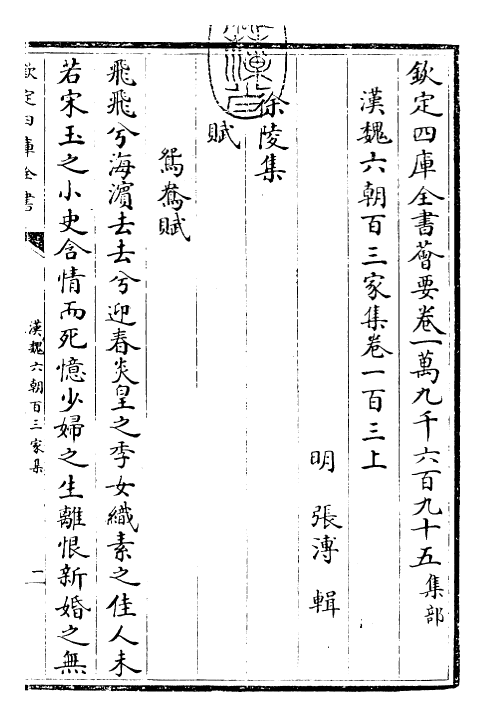 欽定四庫全書薈要卷一萬九千六百九十五集部
漢魏六朝百三家集卷一百三上
明 張溥 輯
徐陵集
賦
鴛鴦賦
飛飛兮海濱去去兮迎春炎皇之季女織素之佳人未
若宋玉之小史含情而死憶少婦之生離恨新婚之無
欽定四庫全書
漢魏六朝百三家集